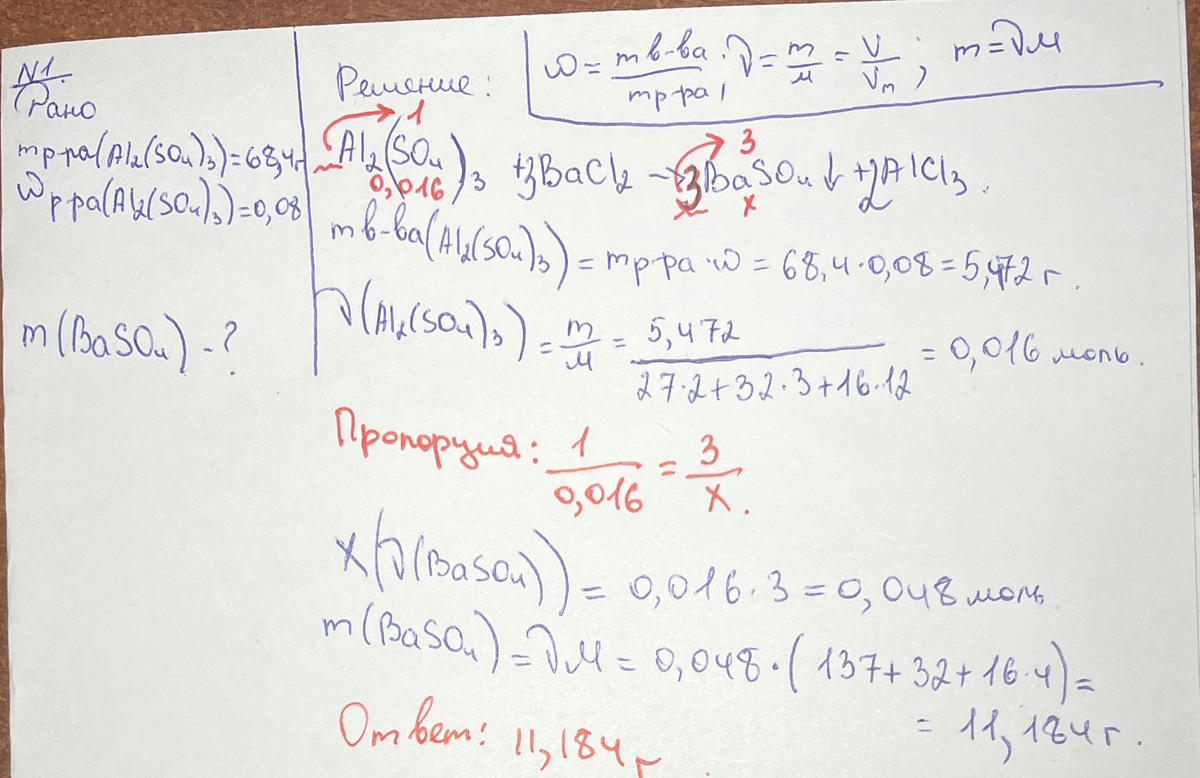 N1.
Дано
mр-ра(Al₂(SO₄)₃)=68,4г
ωр-ра(Al₂(SO₄)₃)=0,08
m(BaSO₄) - ?
Решение:
ω = mв-ва / mр-ра, ν = m/M = V/Vm; m=νM
1 3
Al₂(SO₄)₃ + 3BaCl₂ → 3BaSO₄↓ + 2AlCl₃.
0,016 x
mв-ва(Al₂(SO₄)₃) = mр-ра·ω = 68,4·0,08 = 5,472 г.
ν(Al₂(SO₄)₃) = m/M = 5,472 / 27·2+32·3+16·12 = 0,016 моль.
Пропорция: 1/0,016 = 3/x.
x(ν(BaSO₄)) = 0,016·3 = 0,048 моль
m(BaSO₄) = νM = 0,048·(137+32+16·4) =
= 11,184 г.
Ответ: 11,184 г.